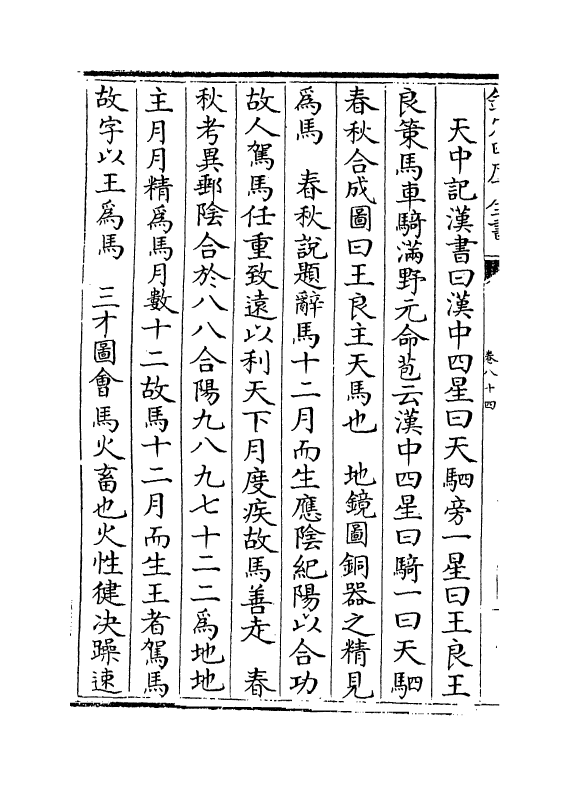 欽定四庫全書
卷八十四
天中記漢書曰漢中四星曰天駟旁一星曰王良王
良策馬車騎滿野元命苞云漢中四星曰騎一曰天駟
春秋合成圖曰王良主天馬也　地鏡圖銅器之精見
爲馬　春秋說題辭馬十二月而生應陰紀陽以合功
故人駕馬任重致遠以利天下月度疾故馬善走　春
秋考異郵陰合於八八合陽九八九七十二二爲地地
主月月精爲馬月數十二故馬十二月而生王者駕馬
故字以王爲馬　三才圖會馬火畜也火性健决躁速